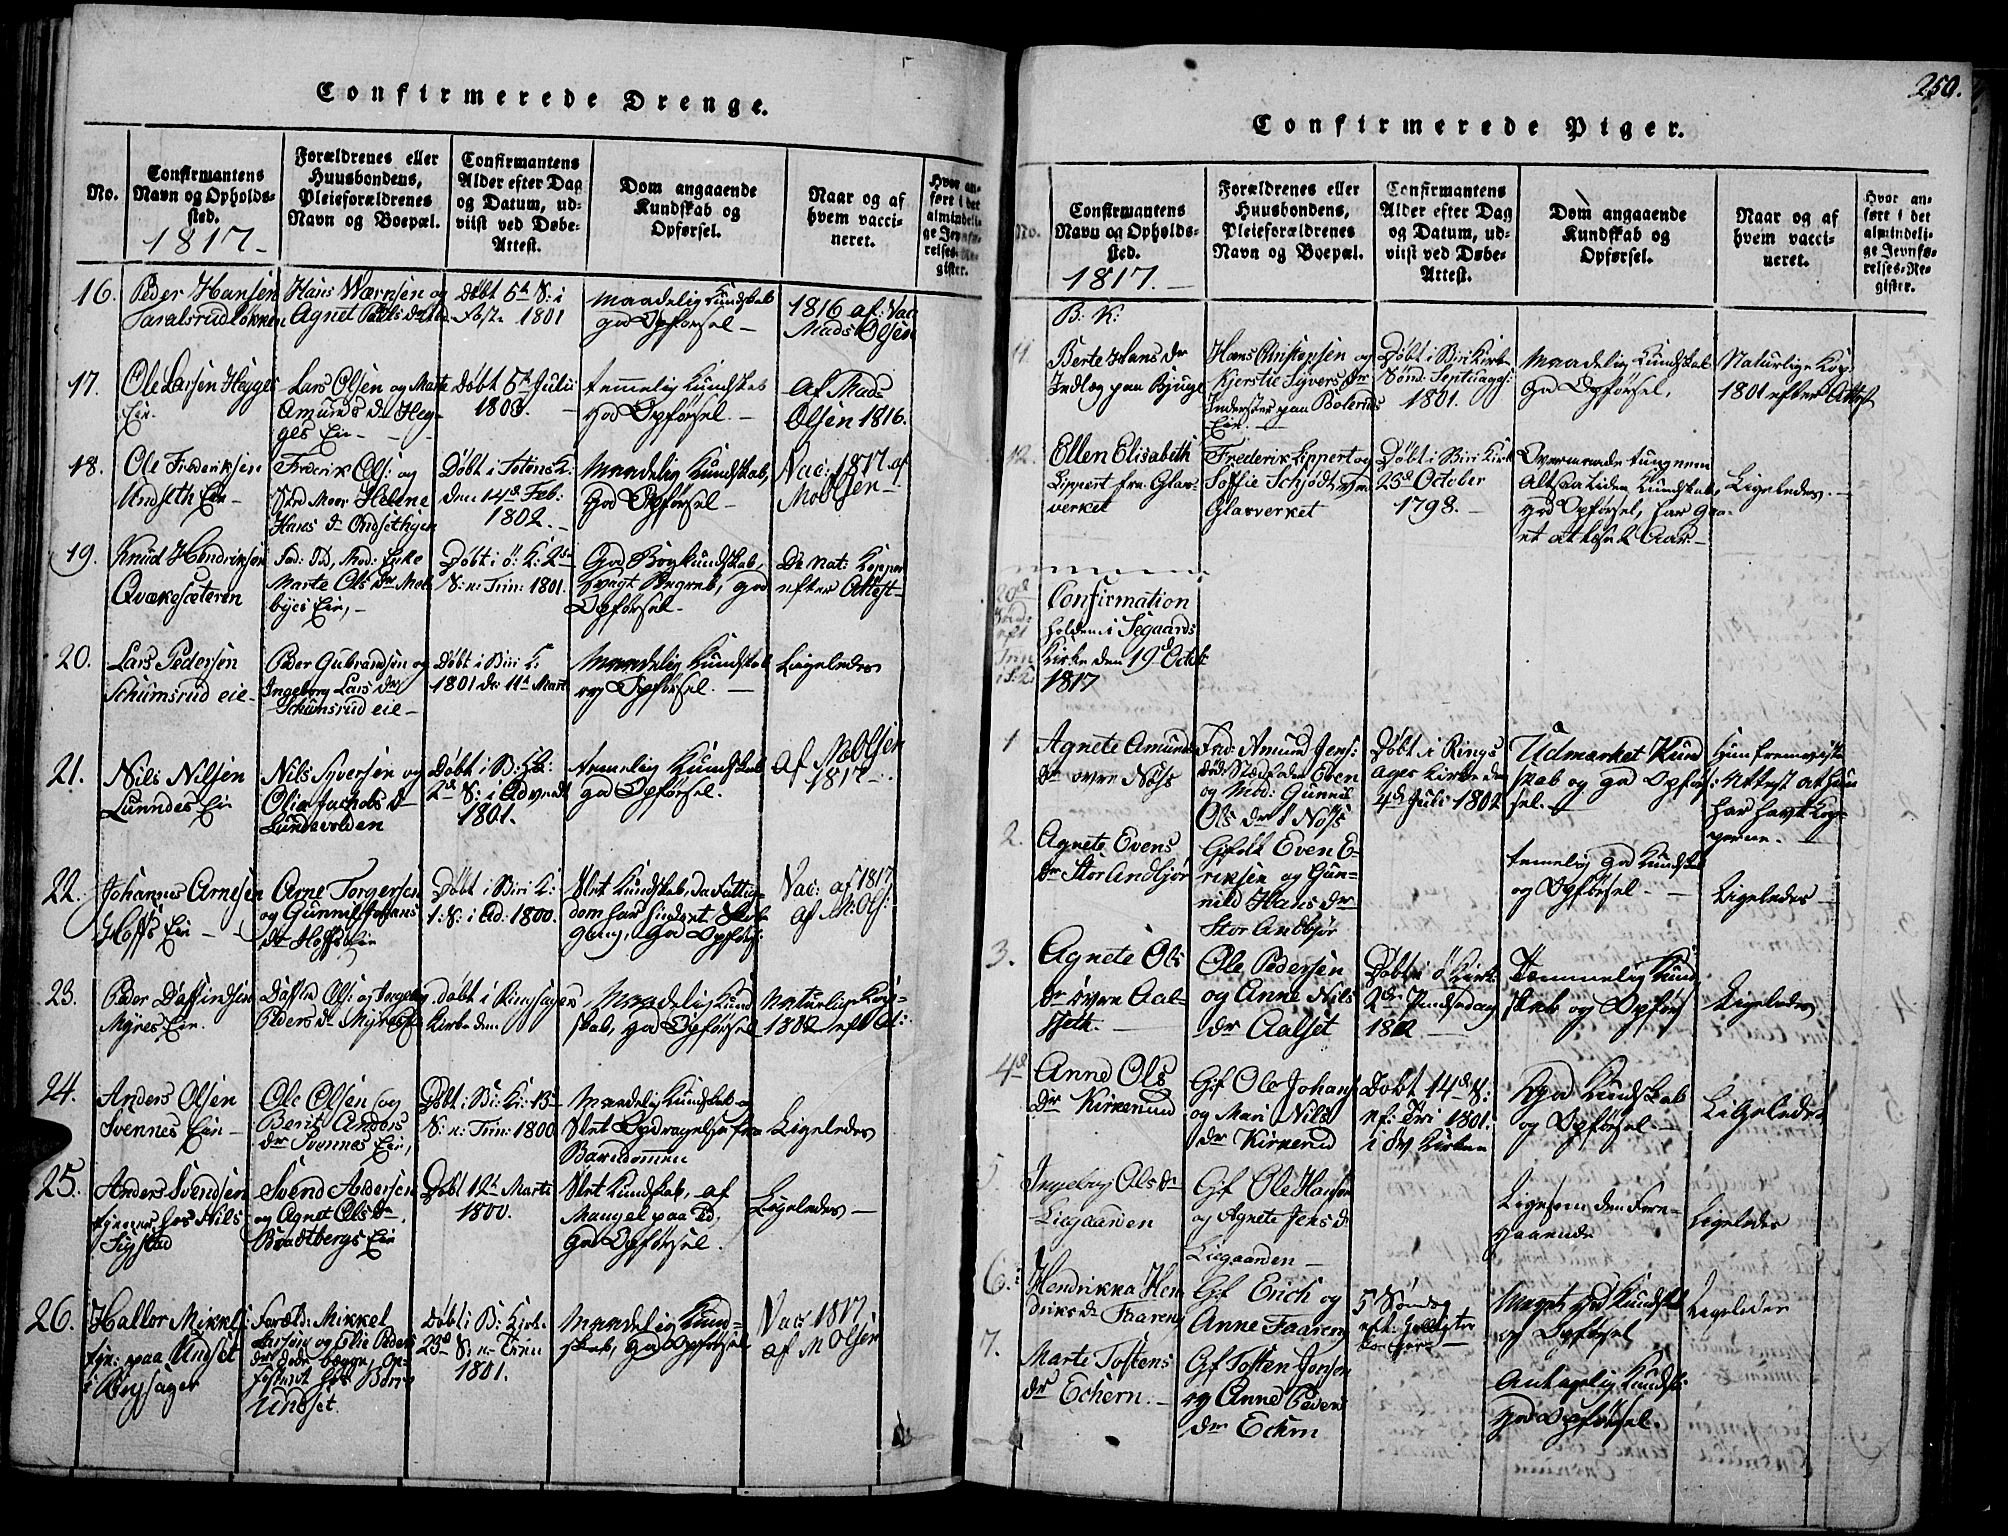 Confirmerede Drenge.
No.
Confirmantens
Navn og Opholds-
sted.
1817
Forældrenes eller
Huusbondens,
Pleieforældrenes
Navn og Boepæl.
Confirmantens
Alder efter Dag
og Datum, ud-
viist ved Døbe-
Attest.
Dom angaaende
Kundskab og
Opførsel.
Naar og af
hvem vacci-
neret.
Hvor an-
ført i det
almindeli-
ge Jevnfø-
relses-Re-
gister.
16.
Peder Hansen
Hans Wærnsen og
Agnet
Døbt 5te S: i
Faste 1801
maadelig Kundskab
god Opførsel
1816 af: Vac
Mads Olsen
17.
Ole Larsen Hegges
Eie
Lars Olsen og Marte
Amunds dr Heg-
ges Eie
Døbt 5te Julii
1803.
temelig Kundskab
god Opførsel.
af Mads
Olsen 1816.
18.
Ole Frederiksen
Undseth Eie
Frederik Ols: og
Sted Moer Helene
Hans dr
Døbt i Totens K:
den 14de Feb:
1802.
Maadelig Kundskab,
god Opførsel
Vac: 1817 af
M Olsen
19.
Knud Hendriksen
Qvækesæteren
Marte Ols dr
Eie,
Døbt i ø: K: 2de
S: n: Trin: 1801.
God Bogkundskab,
svagt Begreb, god
Opførsel.
De nat: Kopper
efter Attest
20.
Lars Pedersen
Schumsrud eie
Peder Gulbrandsen og
Ingeborg Lars dr
Schumsrud eie
Døbt i Biri K:
1801 de: 11te Mart
Maadelig Kundskab
og Opførsel.
Ligeledes
21.
Nils Nilsen
Lunndes Eie
Nils Syversen og
Olia Jachobs dr
Lundevolden
Døbt i B: K:
2de S: i Advent
1801.
temelig Kundskab
god Opførsel.
af M Olsen
1817
22.
Johannes Arnesen
Hoffs Eie
Arne Torgersen
og Gunnild
dr Hoffs Eie
Døbt i Biri K:
1: S: i Ad. 1800.
Slet Kundskab, da Fattig-
dom har hindret Skole
gang, god Opførs:
Vac: af 1817
af M: Ols:
23.
Peder Daffindsen
Myres Eie.
Daffin Ols: og Ingeborg
Peders dr Myres Eie
døbt i Ringsager
Kirke den
Maadelig Kund
skab, god Opførsel
Naturlige Kop-
1802 eft At:
24.
Anders Olsen
Svennes Eie
Ole Olsen og
Berit Anders
dr Svennes Eie,
Døbt i Bi: Ki: 13de
S: n: Trin: 1800
Maadelig Kundskab
slet Opdragelse fra
Barndommen
Ligeledes
25.
Anders Svendsen
tjener hos Nils
Sigstad
Svend Andersen
og Agnet Ols dr
Bradtbergs Eie
Døbt 12te Marti
1800.
Slet Kundskab, af
Mangel paa Tid,
god Opførsel.
Ligeledes
26.
Hallor Mikkels:
tjen: paa Undset
i Ringsager
Foræld: Mikkel
Larsen og Olia Peders
dr døde begge, op-
fostret hos
Undset.
Døbt i B: Kirke
23de S: n: Trin:
1801.
Maadelig Kund-
skab, god Opførsel
Vac: 1817
af M Olsen
250.
Confirmerede Piger.
No.
Confirmantens
Navn og Opholds-
sted.
1817.
Forældrenes eller
Huusbondens,
Pleieforældrenes
Navn og Boepæl.
Confirmantens
Alder efter Dag
og Datum, ud-
viist ved Døbe-
Attest.
Dom angaaende
Kundskab og
Opførsel.
Naar og af
hvem vacci-
neret.
Hvor an-
ført i det
almindeli-
ge Jevnfø-
relses-Re-
gister.
B: K:
11.
Berte Hans dr
Indlog paa Bjuge
Hans Christensen og
Kjerstie Syvers dr
Inderster paa Bolerud
Eie.
Døbt i Biri Kirke
Sønd: Septuages:
1801.
Maadelig Kundskab
god Opførsel.
Naturlige Kop:
1801 efter Attest
12.
Ellen Elisabeth
Lippert fra Glas-
verket
Frederik Lippert og
Soffie Schjødt ved
Glasverket
Døbt i Biri Kirk
23de October
1798.
Overmaade tungnem
altsaa liden Kundskab,
god Opførsel, har gaa-
et at læse 2 Aar
Ligeledes.
Confirmation
holden i Segaards
Kirke den 19de Octob:
1817
1
Agnete Amunds
dr øvre Nøss
Fad: Amund Jens:
død: Stedfader Even
og Mod: Gunnil
Ols dr Nøss
Døbt i Rings
ager Kirke den
4de Juli 1802
Udmærket Kund
skab og god Opfør
sel.
Hun fremviste
Attest at hun
har havt Kop-
perne.
2.
Agnete Evens
dr Stor Andbjør
Gftt Even E-
riksen og Gun-
nild Hans dr
Stor Andbjør
temelig god Kundskab
og Opførsel.
Ligeledes
3.
Agnete Ols
dr øvre Aal-
seth.
Ole Pedersen
og Anne Nils
dr Aalset
Døbt i ø Kirk:
2den Pindsedag
1802
Temmelig Kund
skab og Opførs
Ligeledes
4de
Anne Ols
dr Kirkerud
Gif Ole Johans
og Mari Nils
dr Kirkerud
Døbt 14de S:
ef: Tri 1801.
i Kirken
God Kundskab
og Opførsel
Ligeledes
5.
Ingeborg Ols dr
Liegaarden
Gif Ole Hansen
og Agnete Jens dr
Liegaarden
Ligesom den Fore-
gaaende
Ligeledes
6.
Hendrikka Hen
driks dr Faaren
Gf Erich og
Anne Faaren
5 Søndag
eft: Hellig tre
Konger
Meget god Kundskab
og Opførsel
Ligeledes
7.
Marte Tostens
dr Echern.
Gf Tosten Jonsen
og Anne Peders
dr Echern
Antagelig Kundsk:
god Opførsel.